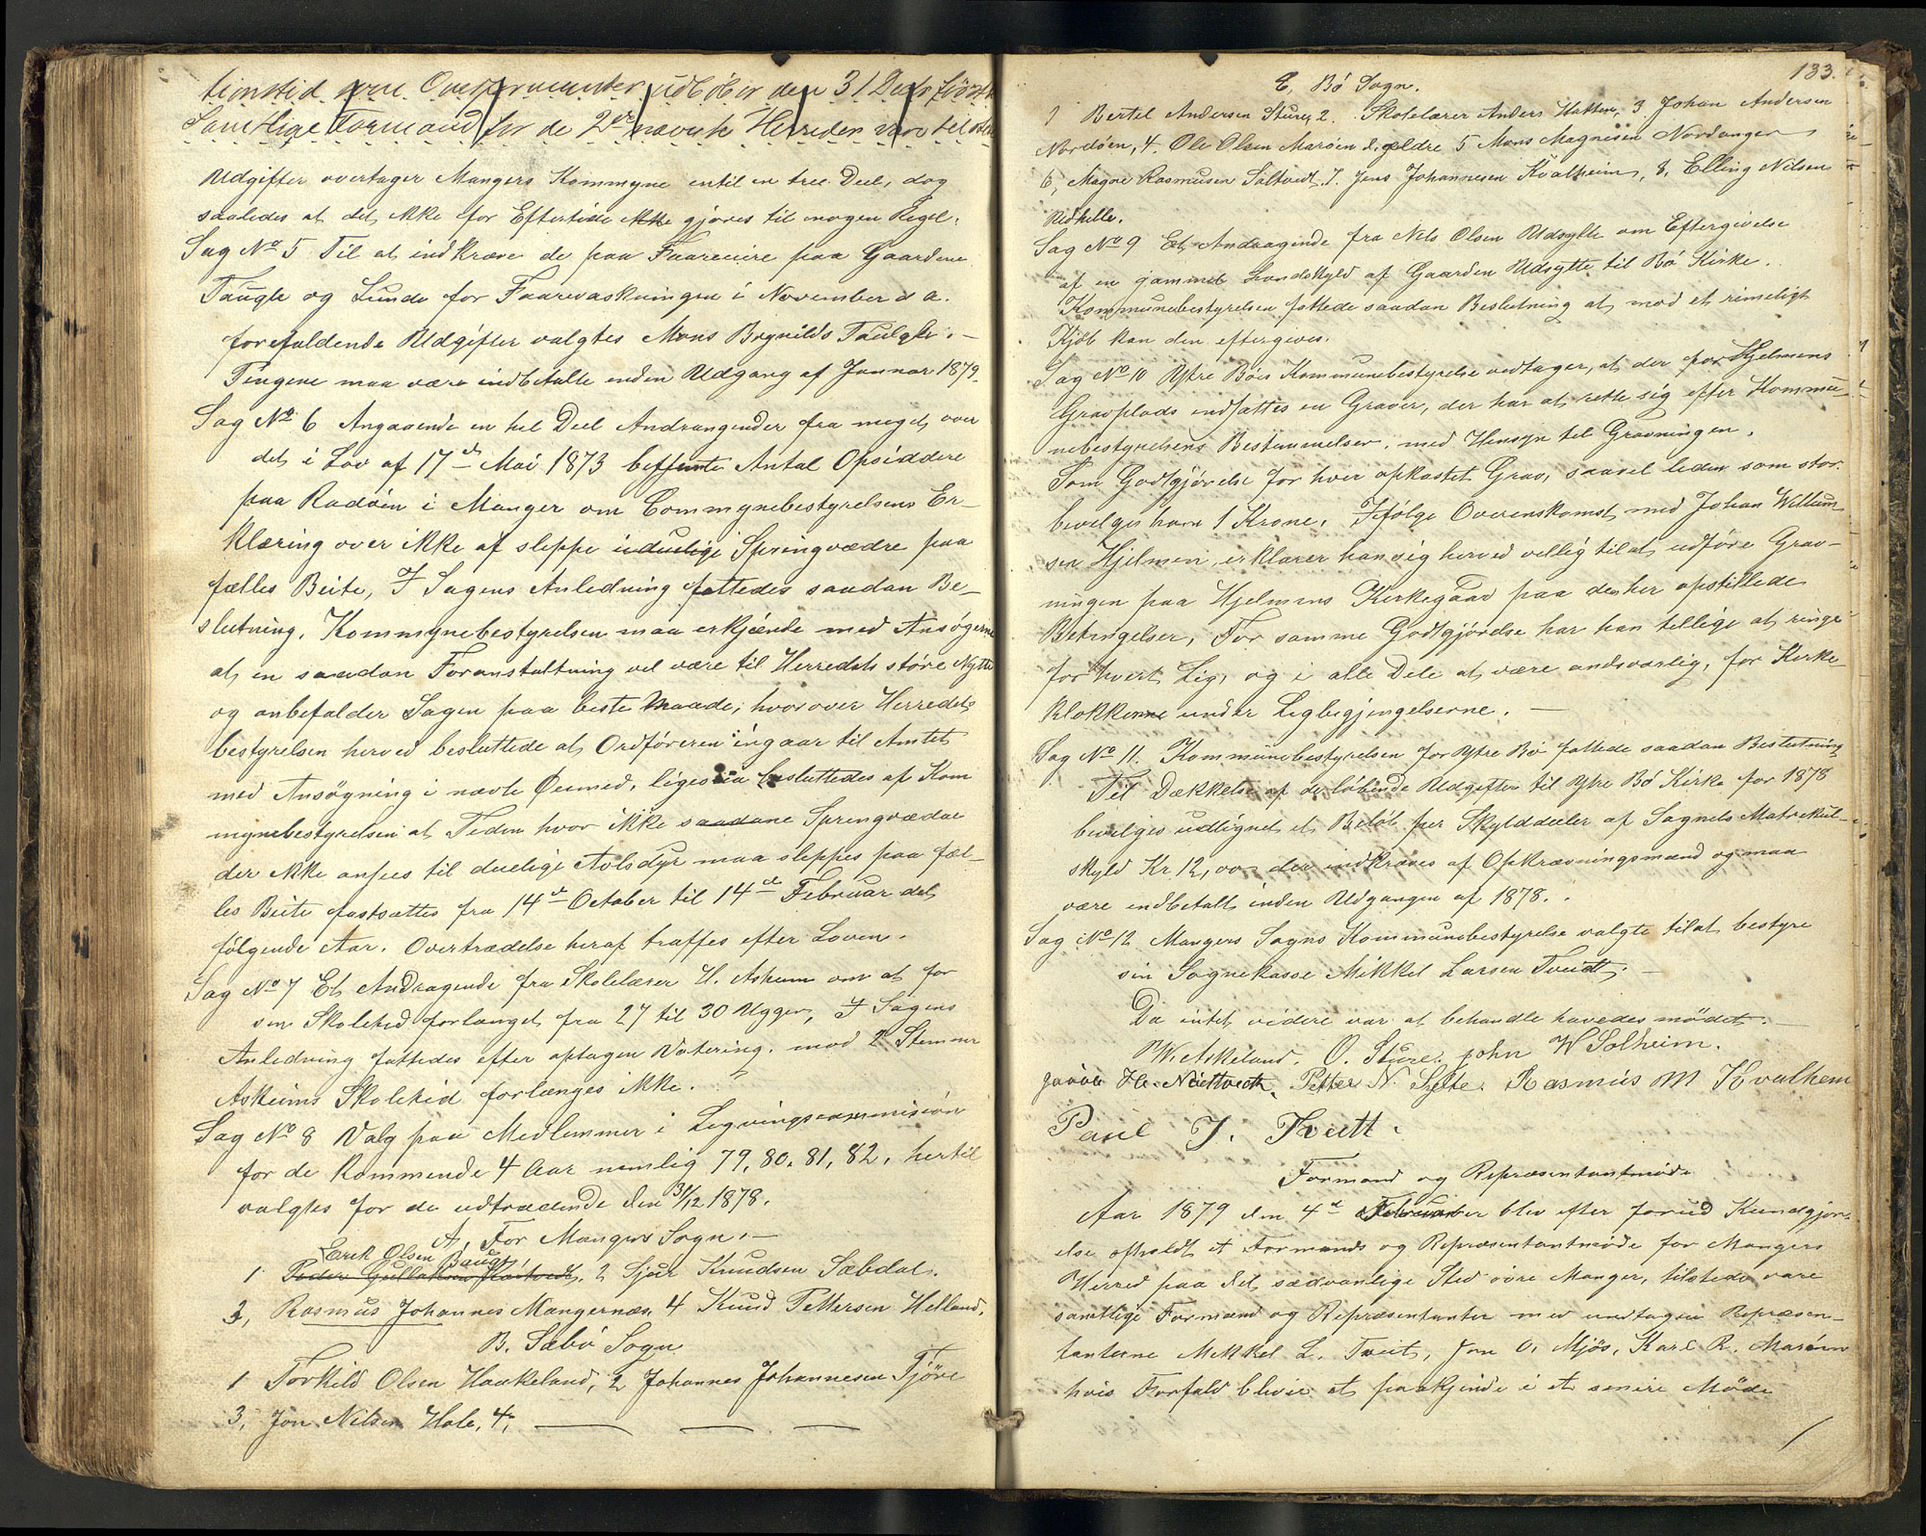 timstid som Ombudsmænder udløber den 31 Decbr først
Samtlige Formænd for de 2de nævnte Herreder
Udgifter overtager Mangers Kommyne entil en tree Deel, dog
saaledes at det ikke for Eftertiden ikke gjøres til nogen Regel.
Sag No 5 Til at indkræve de paa Faareeiere paa Gaardene
Taugle og Lunde for Faarevaskningen i November d. a.
forefaldende Udgifter valgtes Mons Brynilds Taulgle. —
Pengene maa være indbetalte inden Udgang af Januar 1879.
Sag No 6 Angaaende en hel Deel Andragender fra meget over
det i Lov af 17de Mai 1873 bestemte Antal Opsiddere
paa Radøen i Manger om Commynebestyrelsens Er-
klæring over ikke at sleppe uduelige Springvædre paa
fælles Beite, I Sagens Anledning fattedes saadan Be-
slutning. Kommynebestyrelsen maa erkjænde med Ansøgerne
at en saadan Foranstaltning vel være til Herredets større Nytte
og anbefalder Sagen paa beste Maade; hvorover Herreds-
bestyrelsen herved besluttede at Ordføreren ingaar til Amtet
med Ansøgning i nævte Øiemed, ligesaa besluttedes af Kom
mynebestyrelsen at Tiden hvor ikke saadane Springvædre
der ikke ansees til duelige Avlsdyr maa sleppes paa fæl-
les Beite fastsættes fra 14de October til 14de Februar det
følgende Aar. Overtrædelse heraf straffes efter Loven.
Sag No 7 Et Andragende fra Skolelærer H. Askeim om at for
sin Skoletid forlanget fra 27 til 30 Ugger, I Sagens
Anledning fattedes efter optagen Votering. mod 2 Stemmer
Askeims Skoletid forlænges ikke.
Sag No 8 Valg paa Medlemmer i Ligningscommisiön
for de kommende 4 Aar nemlig 79, 80, 81, 82, hertil
valgtes for de udtrædende den 31/12 1878.
A, For Mangers Sogn. —
Erik Olsen Bauge
1 Peder Gullaksen 2 Sjur Knudsen Sæbdal.
3, Rasmus Johannes Mangernæs 4 Knud Pettersen Helland.
B. Sæbö Sogn
1 Torkild Olsen Haukeland, 2 Johannes Johannesen Fjöre
3, Jon Nilsen Hole, 4,
133.
C, Bø Sogn.
1 Bertel Andersen Sture, 2. Skolelærer Anders Hatten, 3 Johan Andersen
Nordöen, 4. Ole Olsen Maröen d. ældre 5 Mons Magnesen Nordanger
6, Magne Rasmusen Saltvedt, 7. Jens Johannesen Kvalheim, 8, Elling Nilsen
Udhelle.
Sag No 9 Et Andragende fra Nils Olsen Udsylte om Eftergivelse
af en gammel Landskyld af Gaarden Udsylte til Bø Kirke.
Kommunebestyrelsen fattede saadan Beslutning at mod et rimeligt
Kjöb kan den eftergives.
Sag No 10 Ytre Bøes Kommunebestyrelse vedtager, at der for Hjelmens
Gravplads indsættes en Graver, der har at rette sig efter Kommu-
nebestyrelsens Bestemmelser, med Hensyn til Gravningen.
Som Godtgjörelse for hver opkastet Grav, saavel liden som stor
bevilges ham 1 Krone. Ifölge Overenskomst med Johan Willum
sen Hjelmen, erklærer han sig herved villig til at udföre Grav-
ningen paa Hjelmens Kirkegaard paa de her opstillede
Betingelser, For samme Godtgjörelse har han tillige at ringe
for hvert Lig, og i alle Dele at være andsvarlig, for Kirke-
klokkerne under Ligbegjengelserne. —
Sag No 11. Kommunebestyrelsen for Ytre Bö fattede saadan Beslutning
Til Dækkelse af de löbende Udgifter til Ytre Bö Kirke for 1878
bevilges udlignet et Belöb per Skylddaler af Sognets Matrekul-
skyld Kr 12,00 der indkræves af Opkrævningsmand og maa
være indbetalt inden Udgangen af 1878.
Sag No 12 Mangers Sogns Kommunebestyrelse valgte til at bestyre
sin Sognekasse Mikkel Larsen Tveidt. —
Da intet videre var at behandle hævedes mödet. —
W. Askeland. O. Sture. john W Solheim.
Petter N. Sylte. Rasmus M Kvalhem
Paul J. Tveitt.
Formand og Repræsentantmöde
Aar 1879 den 4de Februar blev efter forud Kundgjör-
else afholdt et Formands og Repræsentantmöde for Mangers
Herred paa det sædvanlige Sted övre Manger, tilstede vare
samtlige Formænd og Repræsentanter med undtagen Repræsen-
tanterne Mikkel L. Tveit, Jon O. Mjös, Karl R. Maröen
hvis Forfald bliver at paakjende i et senere Möde